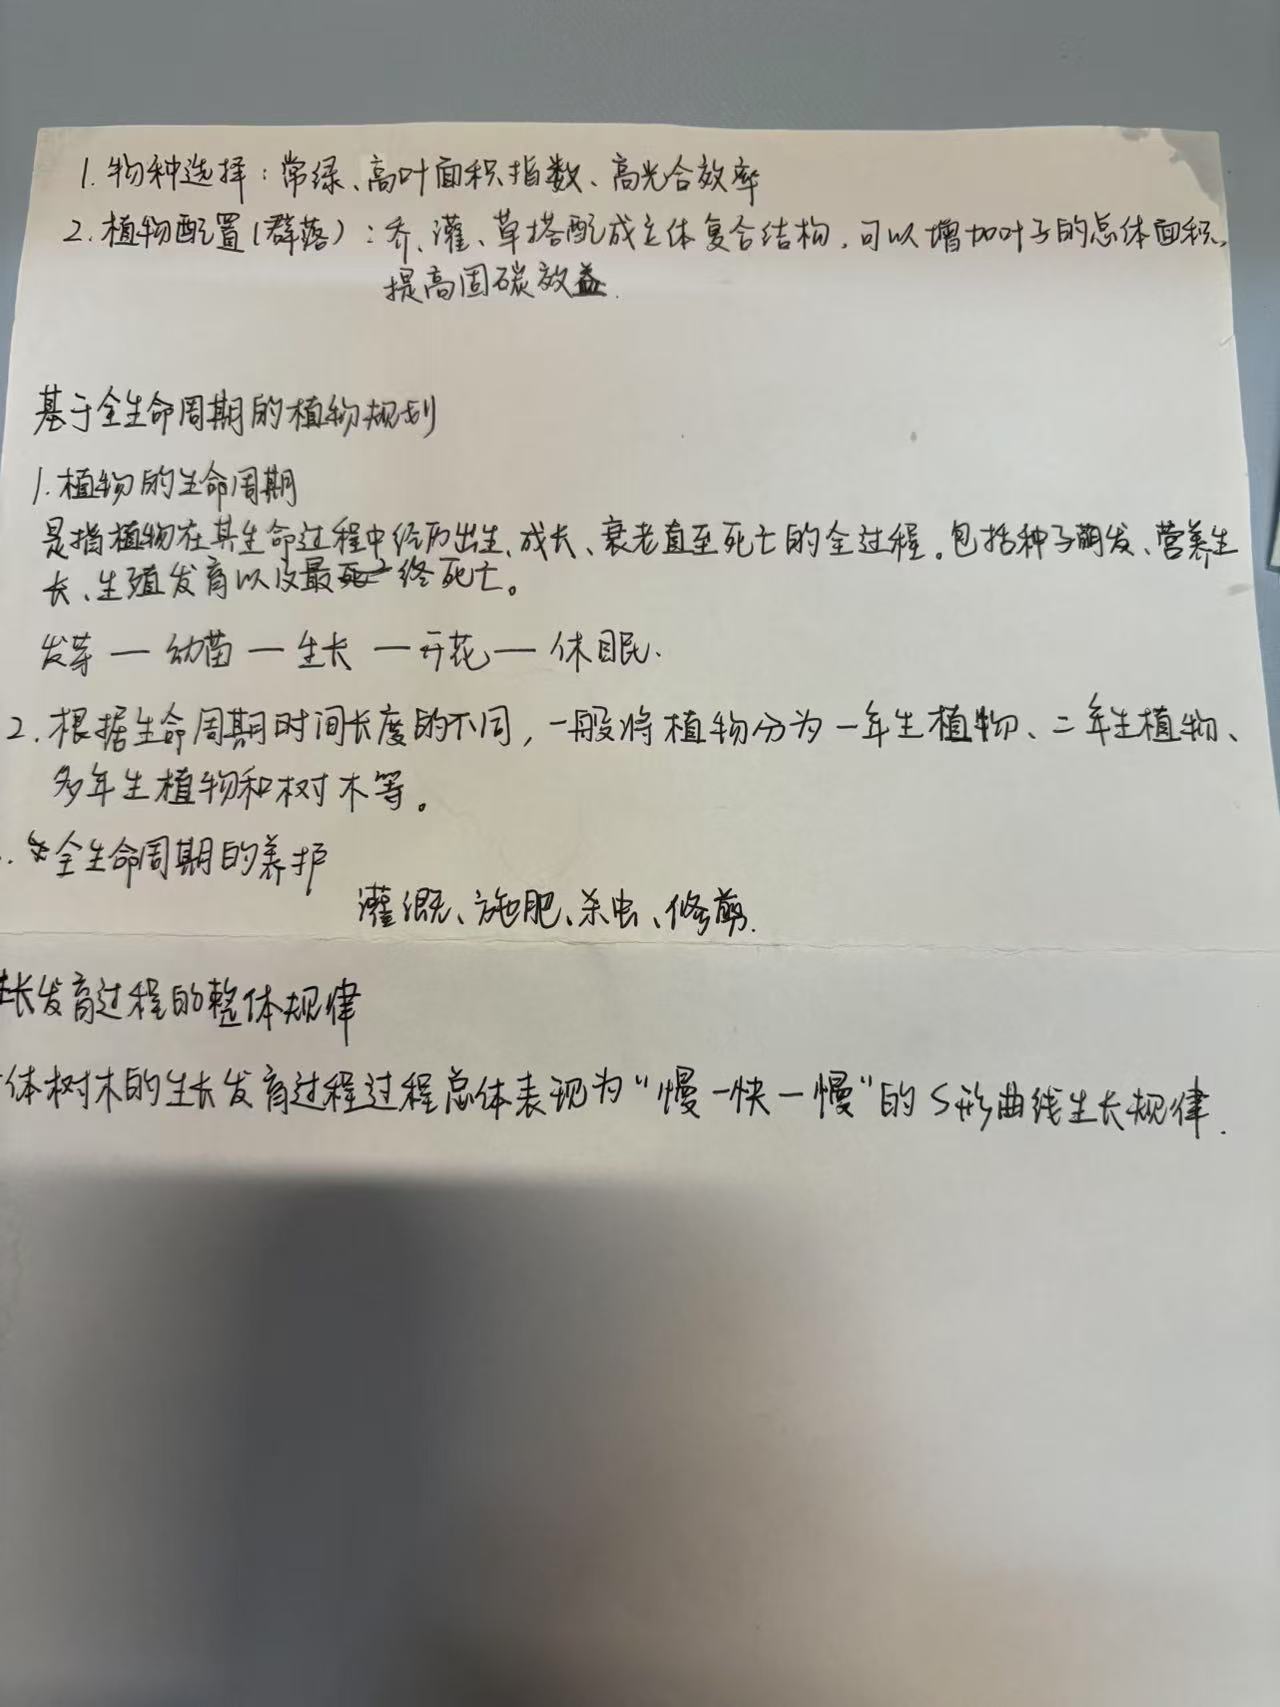 1. 物种选择：常绿、高叶面积指数、高光合效率
2. 植物配置（群落）：乔、灌、草搭配成立体复合结构，可以增加叶子的总体面积，
提高固碳效益.
基于全生命周期的植物规划
1. 植物的生命周期
是指植物在其生命过程中经历出生、成长、衰老直至死亡的全过程。包括种子萌发、营养生
长、生殖发育以及最终死亡。
发芽—幼苗—生长—开花—休眠.
2. 根据生命周期时间长度的不同，一般将植物分为一年生植物、二年生植物、
多年生植物和树木等。
全生命周期的养护
灌溉、施肥、杀虫、修剪.
长发育过程的整体规律
体树木的生长发育过程过程总体表现为“慢—快—慢”的S形曲线生长规律.